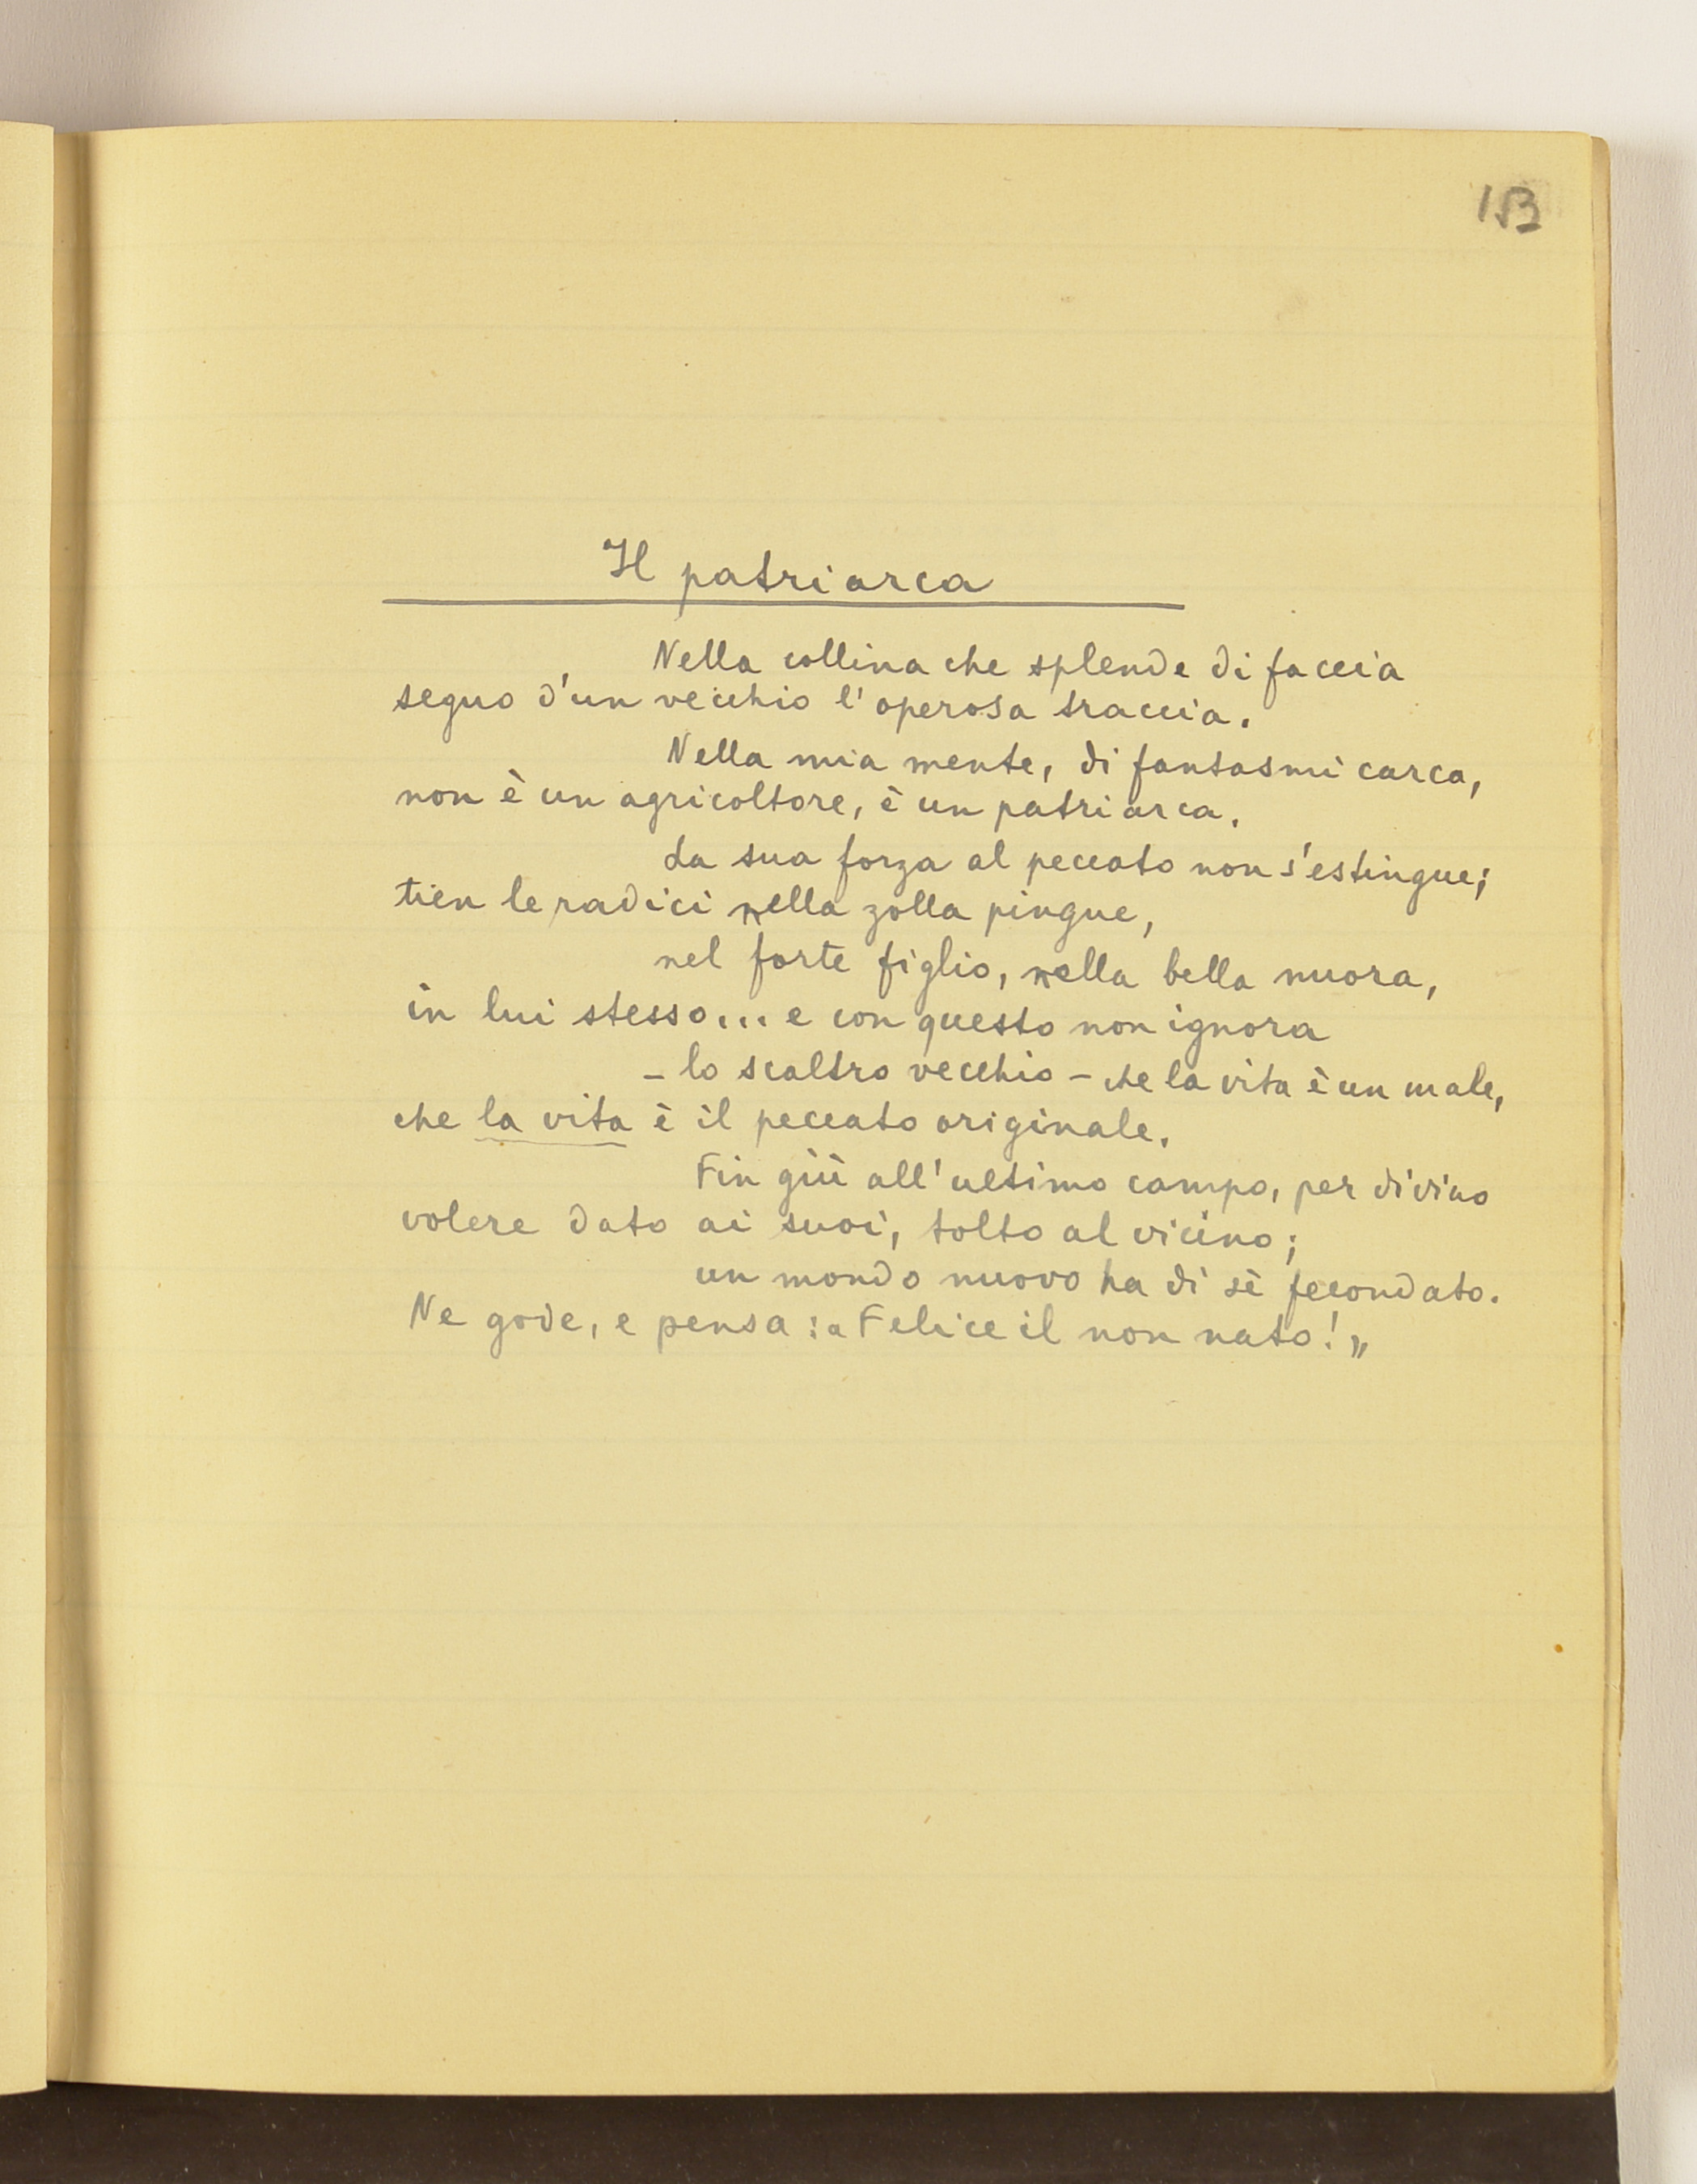 153
Il patriarca
Nella collina che splende di faccia
seguo d'un vecchio l'operosa traccia.
Nella mia mente, di fantasmi carca,
non è un agricoltore, è un patriarca.
La sua forza al peccato non s'estingue;
tien le radici nella zolla pingue,
nel forte figlio, nella bella nuora,
in lui stesso... e con questo non ignora
- lo scaltro vecchio - che la vita è un male,
che la vita è il peccato originale.
Fin giù all'ultimo campo, per divino
volere dato ai suoi, tolto al vicino;
un mondo nuovo ha di sè fecondato.
Ne gode, e pensa: "Felice il non nato!"